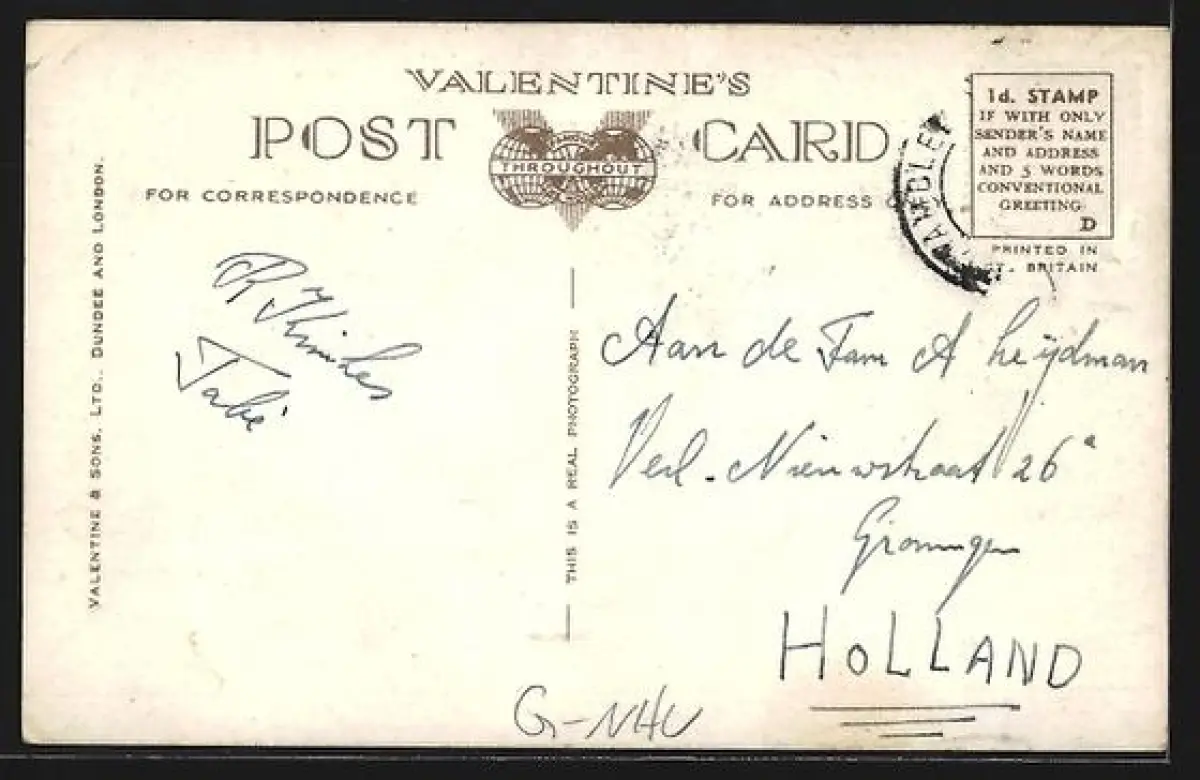 VALENTINE'S
POST CARD
THROUGHOUT
FOR CORRESPONDENCE
FOR ADDRESS
1d. STAMP
IF WITH ONLY
SENDER'S NAME
AND ADDRESS
AND 5 WORDS
CONVENTIONAL
GREETING
D
PRINTED IN
GT. BRITAIN
VALENTINE & SONS, LTD., DUNDEE AND LONDON.
THIS IS A REAL PHOTOGRAPH
Aan de Fam A Heijdman
Verl. Nieuwstraat 26a
Groningen
HOLLAND